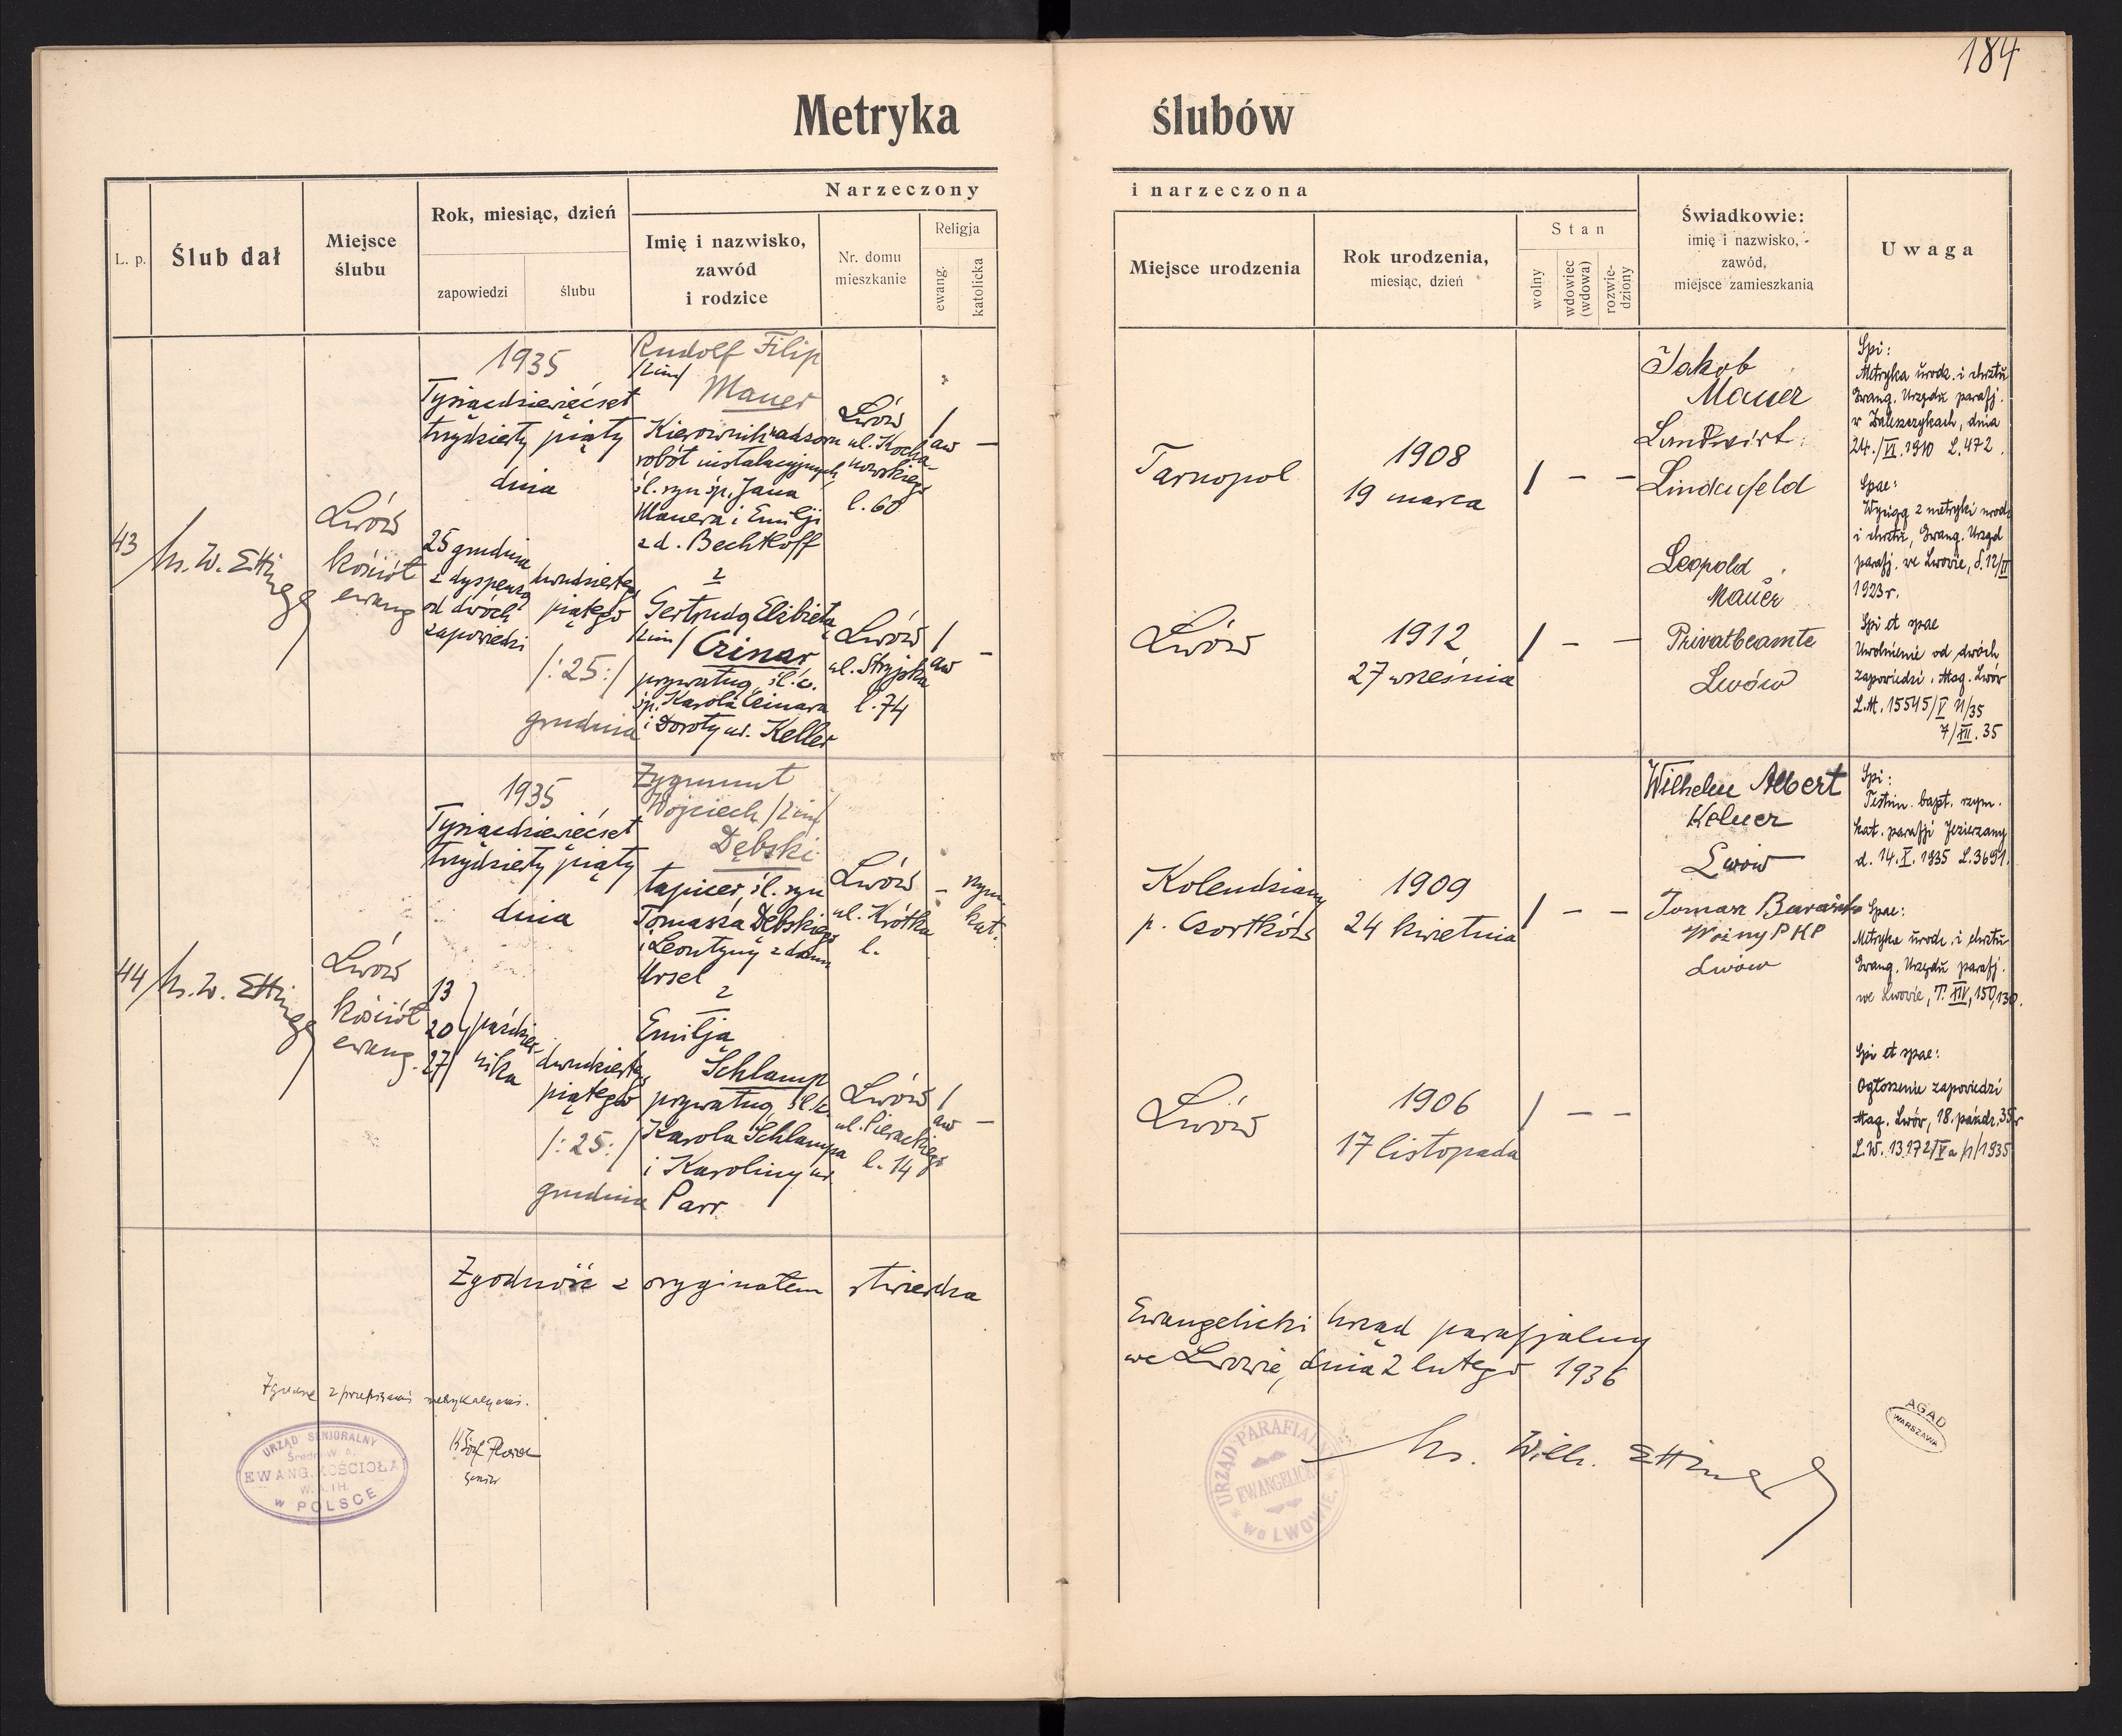 184
Metryka ślubów
Narzeczony i narzeczona
L. p.
Ślub dał
Miejsce
ślubu
Rok, miesiąc, dzień
zapowiedzi
ślubu
Imię i nazwisko,
zawód
i rodzice
Nr. domu
mieszkanie
Religja
ewang.
katolicka
Miejsce urodzenia
Rok urodzenia,
miesiąc, dzień
Stan
wolny
wdowiec
(wdowa)
rozwie-
dziony
Świadkowie:
imię i nazwisko,
zawód,
miejsce zamieszkania
Uwaga
43/
ks. W. Ettinger
Lwów
kościół
ewang
1935
Tysiącdziewięćset
trzydziesty piąty
dnia
25 grudnia
z dyspenzą
od dwóch
zapowiedzi
dwudziestego
piątego
/:25:/
grudnia
Rudolf Filip
/2im/
Mauer
Kierownik nadzoru
robót instalacyjnych
śl. syn śp. Jana
Mauera i Emilji
z d. Bechtloff
z
Gertrudą Elżbietą
/2im/ Czinar
prywatną, śl. c.
śp. Karola Czinara
i Doroty ur. Keller
Lwów
ul. Kocha-
nowskiego
l. 60
/
aw
—
Lwów
ul. Stryjska
l. 74
/
aw
—
Tarnopol
1908
19 marca
/ - -
Lwów
1912
27 września
/ - -
Jakob
Mauer
Landwirt
Lindenfeld
Leopold
Mauer
Privatbeamte
Lwów
Spi:
Metryka urodz. i chrztu
Ewang. Urzędu parafj.
w Zaleszczykach, dnia
24./VI. 1910 L. 472.
Spae:
Wyciąg z metryki urodz.
i chrztu, Ewang. Urząd
parafj. we Lwowie, d. 12/II
1923 r.
Spi et spae
Uwolnienie od dwóch
zapowiedzi, Mag. Lwów
L.M. 15545/V 11/35
7/XII. 35
44/
ks. W. Ettinger
Lwów
kościół
ewang.
1935
Tysiącdziewięćset
trzydziesty piąty
dnia
13
20
27
paździer-
nika
dwudziestego
piątego
/:25:/
grudnia
Zygmunt
Wojciech /2im/
Dębski
tapicer, śl. syn
Tomasza Dębskiego
i Leontyny z domu
Ursel
z
Emilją
Schlamp
prywatną, śl. c.
Karola Schlampa
i Karoliny ur.
Parr
Lwów
ul. Krótka
l.
-
rzym.
kat.
Lwów
ul. Pierackiego
l. 14
/
aw
—
Kolendziany
p. Czortków
1909
24 kwietnia
/ - -
Lwów
1906
17 listopada
/ - -
Wilhelm Albert
Kelner
Lwów
Tomasz
Woźny PKP
Lwów
Spi:
Testim. bapt. rzym.
kat. parafji Jezierzany
d. 14. X. 1935 L. 3691.
Spae:
Metryka urodz. i chrztu
Ewang. Urzędu parafj.
we Lwowie, T. XIV, 150/130.
Spi et spae:
Ogłoszenie zapowiedzi
Mag. Lwów, 18. paźdz. 35 r
L.W. 13172/Va /1/1935
Zgodność z oryginałem stwierdza
Ewangelicki Urząd parafjalny
we Lwowie, dnia 2 lutego 1936
ks. Wilh. Ettinger
Zgodne z przepisami metrykalnymi.
senior
URZĄD SENJORALNY
EWANG. KOŚCIOŁA
W. A. I H.
w POLSCE
URZĄD PARAFIALNY
EWANGELICKI
we LWOWIE.
AGAD
WARSZAWA